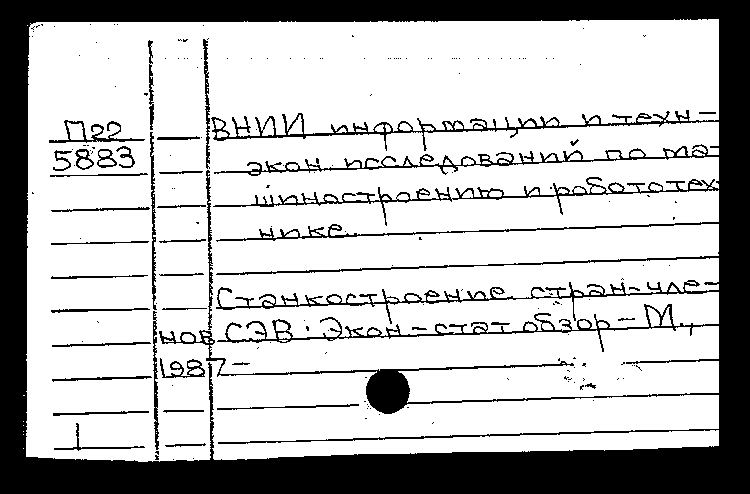 П22
5883
ВНИИ информации и техн-
экон исследований по ма-
шиностроению и робототех
нике.
Станкостроение стран-чле-
нов СЭВ: Экон-стат обзор - М.,
1987-